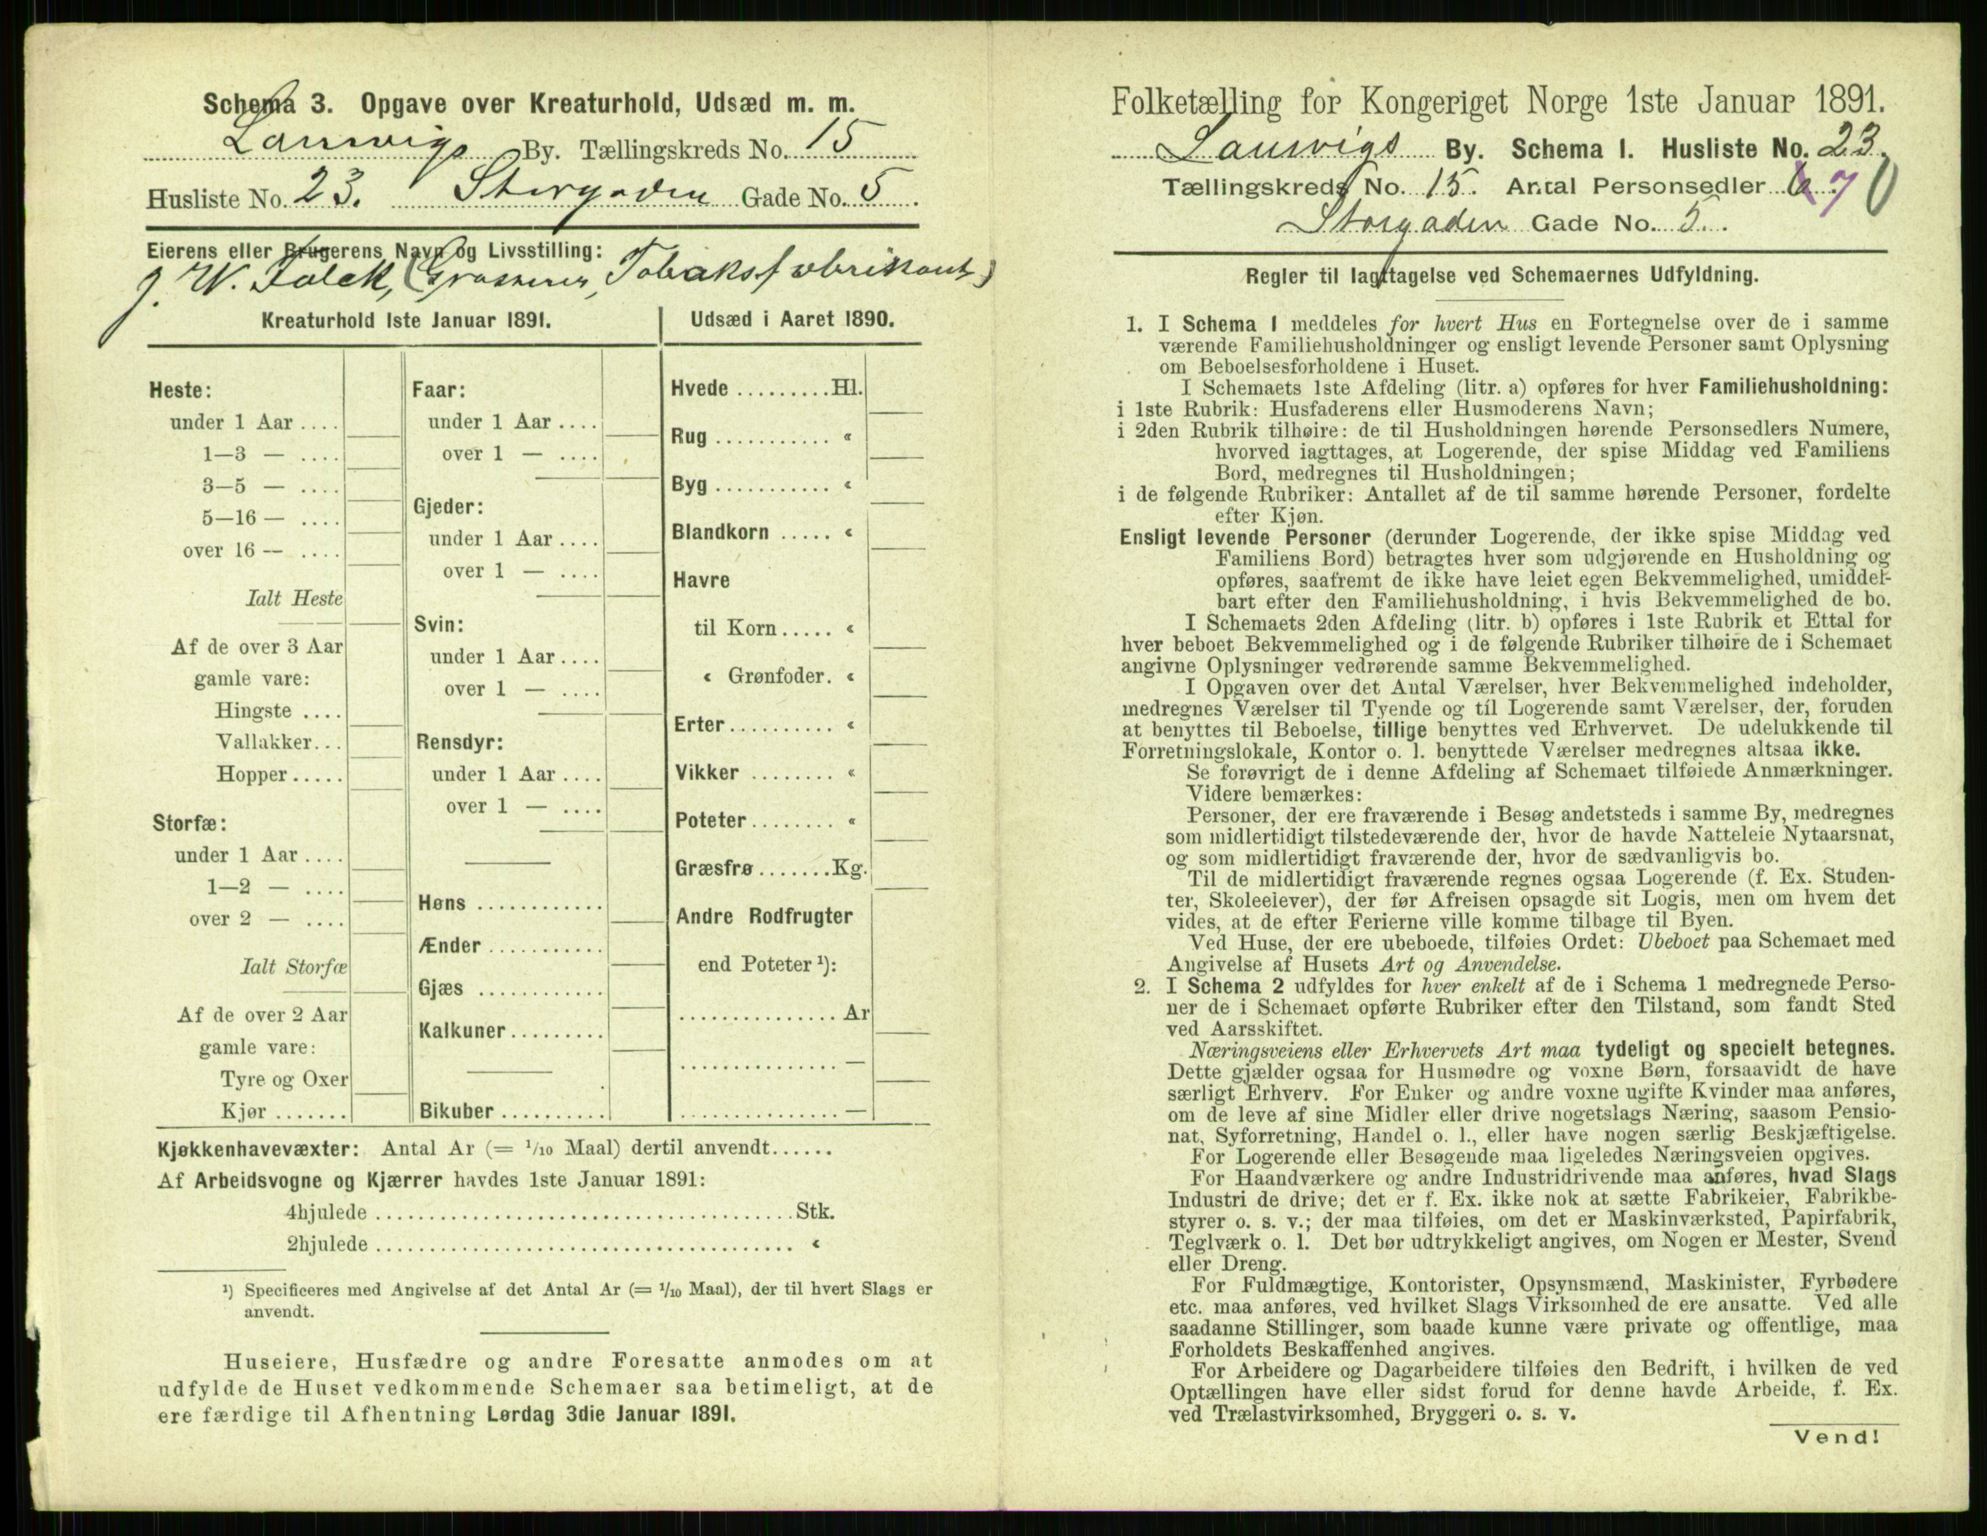 Schema 3. Opgave over Kreaturhold, Udsæd m. m.
Laurvigs By. Tællingskreds No. 15
Husliste No. 23. Storgaden Gade No. 5.
Eierens eller Brugerens Navn og Livsstilling:
J. W. Falck, (Grosserer, Tobaksfabrikant)
Kreaturhold 1ste Januar 1891.
Heste:
under 1 Aar ....
1—3 — ....
3—5 — ....
5—16 — ....
over 16 — ....
Ialt Heste
Af de over 3 Aar
gamle vare:
Hingste ....
Vallakker...
Hopper.....
Storfæ:
under 1 Aar ....
1—2 — ....
over 2 — ....
Ialt Storfæ
Af de over 2 Aar
gamle vare:
Tyre og Oxer
Kjør .......
Faar:
under 1 Aar ....
over 1 — ....
Gjeder:
under 1 Aar ....
over 1 — ....
Svin:
under 1 Aar ....
over 1 — ....
Rensdyr:
under 1 Aar ....
over 1 — ....
Høns ............
Ænder ...........
Gjæs ............
Kalkuner.........
Bikuber ..........
Udsæd i Aaret 1890.
Hvede .........Hl.
Rug ........... «
Byg ........... «
Blandkorn ..... «
Havre
til Korn..... «
« Grønfoder. «
Erter.......... «
Vikker ........ «
Poteter........ «
Græsfrø.......Kg.
Andre Rodfrugter
end Poteter ¹):
............... Ar
............... —
............... —
Kjøkkenhavevæxter: Antal Ar (= 1/10 Maal) dertil anvendt......
Af Arbeidsvogne og Kjærrer havdes 1ste Januar 1891:
4hjulede ........................................Stk.
2hjulede ........................................ «
¹) Specificeres med Angivelse af det Antal Ar (= 1/10 Maal), der til hvert Slags er
anvendt.
Huseiere, Husfædre og andre Foresatte anmodes om at
udfylde de Huset vedkommende Schemaer saa betimeligt, at de
ere færdige til Afhentning Lørdag 3die Januar 1891.
Folketælling for Kongeriget Norge 1ste Januar 1891.
Laurvigs By. Schema 1. Husliste No. 23.
Tællingskreds No. 15. Antal Personsedler 6 7
Storgaden Gade No. 5.
Regler til Iagttagelse ved Schemaernes Udfyldning.
1. I Schema 1 meddeles for hvert Hus en Fortegnelse over de i samme
værende Familiehusholdninger og ensligt levende Personer samt Oplysning
om Beboelsesforholdene i Huset.
I Schemaets 1ste Afdeling (litr. a) opføres for hver Familiehusholdning:
i 1ste Rubrik: Husfaderens eller Husmoderens Navn;
i 2den Rubrik tilhøire: de til Husholdningen hørende Personsedlers Numere,
hvorved iagttages, at Logerende, der spise Middag ved Familiens
Bord, medregnes til Husholdningen;
i de følgende Rubriker: Antallet af de til samme hørende Personer, fordelte
efter Kjøn.
Ensligt levende Personer (derunder Logerende, der ikke spise Middag ved
Familiens Bord) betragtes hver som udgjørende en Husholdning og
opføres, saafremt de ikke have leiet egen Bekvemmelighed, umiddel-
bart efter den Familiehusholdning, i hvis Bekvemmelighed de bo.
I Schemaets 2den Afdeling (litr. b) opføres i 1ste Rubrik et Ettal for
hver beboet Bekvemmelighed og i de følgende Rubriker tilhøire de i Schemaet
angivne Oplysninger vedrørende samme Bekvemmelighed.
I Opgaven over det Antal Værelser, hver Bekvemmelighed indeholder,
medregnes Værelser til Tyende og til Logerende samt Værelser, der, foruden
at benyttes til Beboelse, tillige benyttes ved Erhvervet. De udelukkende til
Forretningslokale, Kontor o. l. benyttede Værelser medregnes altsaa ikke.
Se forøvrigt de i denne Afdeling af Schemaet tilføiede Anmærkninger.
Videre bemærkes:
Personer, der ere fraværende i Besøg andetsteds i samme By, medregnes
som midlertidigt tilstedeværende der, hvor de havde Natteleie Nytaarsnat,
og som midlertidigt fraværende der, hvor de sædvanligvis bo.
Til de midlertidigt fraværende regnes ogsaa Logerende (f. Ex. Studen-
ter, Skoleelever), der før Afreisen opsagde sit Logis, men om hvem det
vides, at de efter Ferierne ville komme tilbage til Byen.
Ved Huse, der ere ubeboede, tilføies Ordet: Ubeboet paa Schemaet med
Angivelse af Husets Art og Anvendelse.
2. I Schema 2 udfyldes for hver enkelt af de i Schema 1 medregnede Perso-
ner de i Schemaet opførte Rubriker efter den Tilstand, som fandt Sted
ved Aarsskiftet.
Næringsveiens eller Erhvervets Art maa tydeligt og specielt betegnes.
Dette gjælder ogsaa for Husmødre og voxne Børn, forsaavidt de have
særligt Erhverv. For Enker og andre voxne ugifte Kvinder maa anføres,
om de leve af sine Midler eller drive nogetslags Næring, saasom Pensio-
nat, Syforretning, Handel o. l., eller have nogen særlig Beskjæftigelse.
For Logerende eller Besøgende maa ligeledes Næringsveien opgives.
For Haandværkere og andre Industridrivende maa anføres, hvad Slags
Industri de drive; det er f. Ex. ikke nok at sætte Fabrikeier, Fabrikbe-
styrer o. s. v.; der maa tilføies, om det er Maskinværksted, Papirfabrik,
Teglværk o. l. Det bør udtrykkeligt angives, om Nogen er Mester, Svend
eller Dreng.
For Fuldmægtige, Kontorister, Opsynsmænd, Maskinister, Fyrbødere
etc. maa anføres, ved hvilket Slags Virksomhed de ere ansatte. Ved alle
saadanne Stillinger, som baade kunne være private og offentlige, maa
Forholdets Beskaffenhed angives.
For Arbeidere og Dagarbeidere tilføies den Bedrift, i hvilken de ved
Optællingen have eller sidst forud for denne havde Arbeide, f. Ex.
ved Trælastvirksomhed, Bryggeri o. s. v.
Vend!